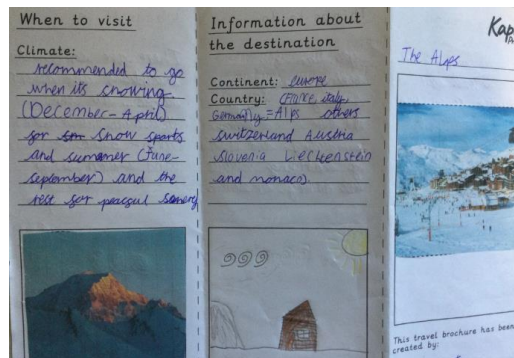 When to visit
Climate:
recommended to go
when its snowing.
(December - April)
for snow sports
and summer (June-
september) and the
rest for peacful
Information about
the destination
Continent: europe
Country: italy,
Germany = Alps others
switzerland Austria
slovenia Liechtenstein
and monaco).
Kap
The Alps
This travel brochure has been
created by: